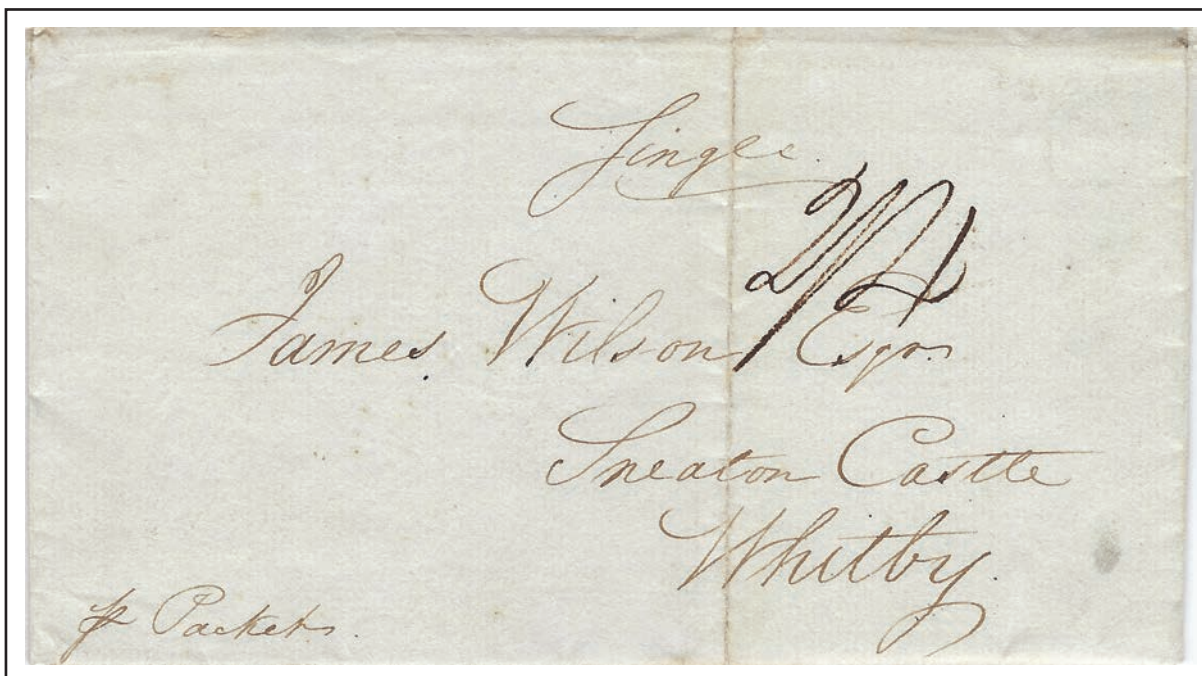 Single
2/4
James Wilson Esqr
Sneaton Castle
Whitby.
pr Packet